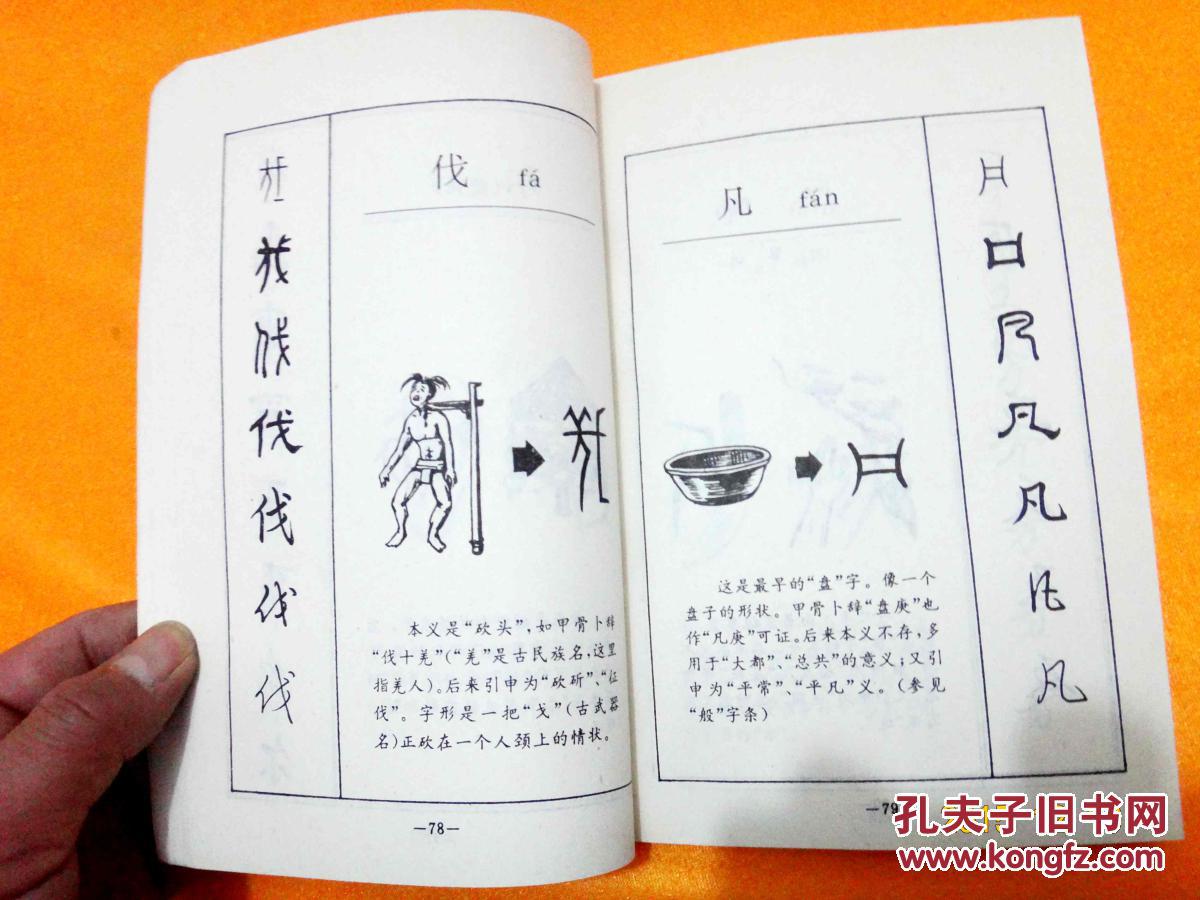 伐 fá
伐
伐
伐
伐
本义是“砍头”,如甲骨卜辞
“伐十羌”(“羌”是古民族名,这里
指羌人)。后来引申为“砍斫”、“征
伐”。字形是一把“戈”(古武器
名)正砍在一个人颈上的情状。
—78—
凡 fán
凡
凡
凡
这是最早的“盘”字。像一个
盘子的形状。甲骨卜辞“盘庚”也
作“凡庚”可证。后来本义不存,多
用于“大都”、“总共”的意义;又引
申为“平常”、“平凡”义。(参见
“般”字条)
—79
孔夫子旧书网
www.kongfz.com